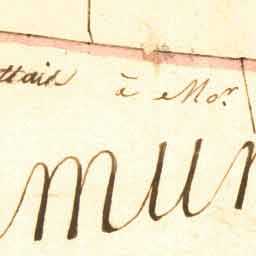 ttais à Mor.
mun